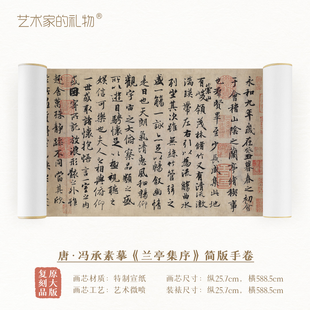 艺术家的礼物
永和九年歲在癸丑暮春之初會
于會稽山陰之蘭亭脩稧事
也群賢畢至少長咸集此地
有崇山峻領茂林脩竹又有清流激
湍暎帶左右引以為流觴曲水
列坐其次雖無絲竹管弦之
盛一觴一詠亦足以暢敘幽情
是日也天朗氣清惠風和暢仰
觀宇宙之大俯察品類之盛
所以遊目騁懷足以極視聽之
娛信可樂也夫人之相與俯仰
一世或取諸懷抱悟言一室之內
或因寄所託放浪形骸之外雖
趣舍萬殊靜躁不同當其欣
唐·冯承素摹《兰亭集序》简版手卷
原大版
复刻品
画芯材质：特制宣纸
画芯尺寸：纵25.7cm，横588.5cm
画芯工艺：艺术微喷
装裱尺寸：纵25.7cm，横588.5cm